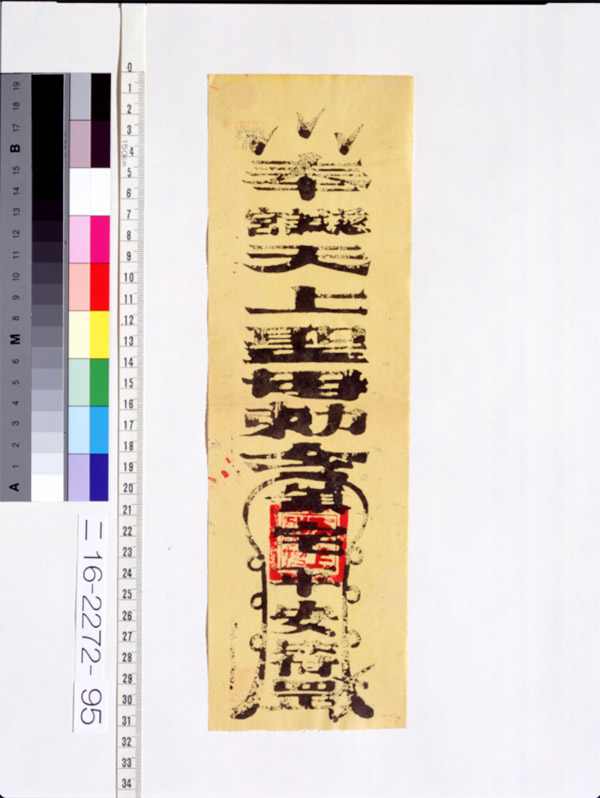 奉
慈諴宮
天上聖母勅令
宅
安符罡
ニ16-2272-95
0
1
2
3
4
5
6
7
8
9
10
11
12
13
14
15
16
17
18
19
20
21
22
23
24
25
26
27
28
29
30
31
32
33
34
A 1 2 3 4 5 6 M 8 9 10 11 12 13 14 15 B 17 18 19